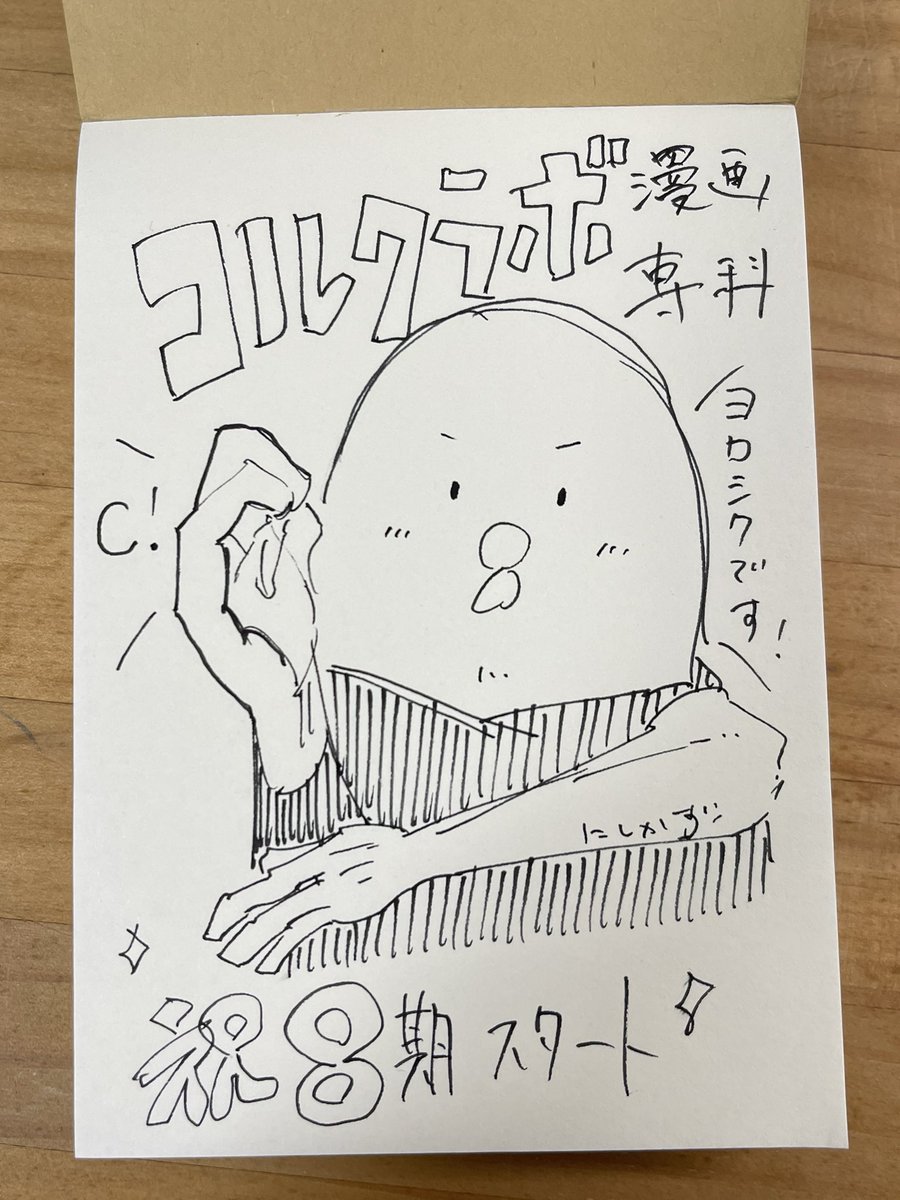 コルクラボ
漫画
専科
ヨロシクです!
C!
にしかず
祝8期スタート